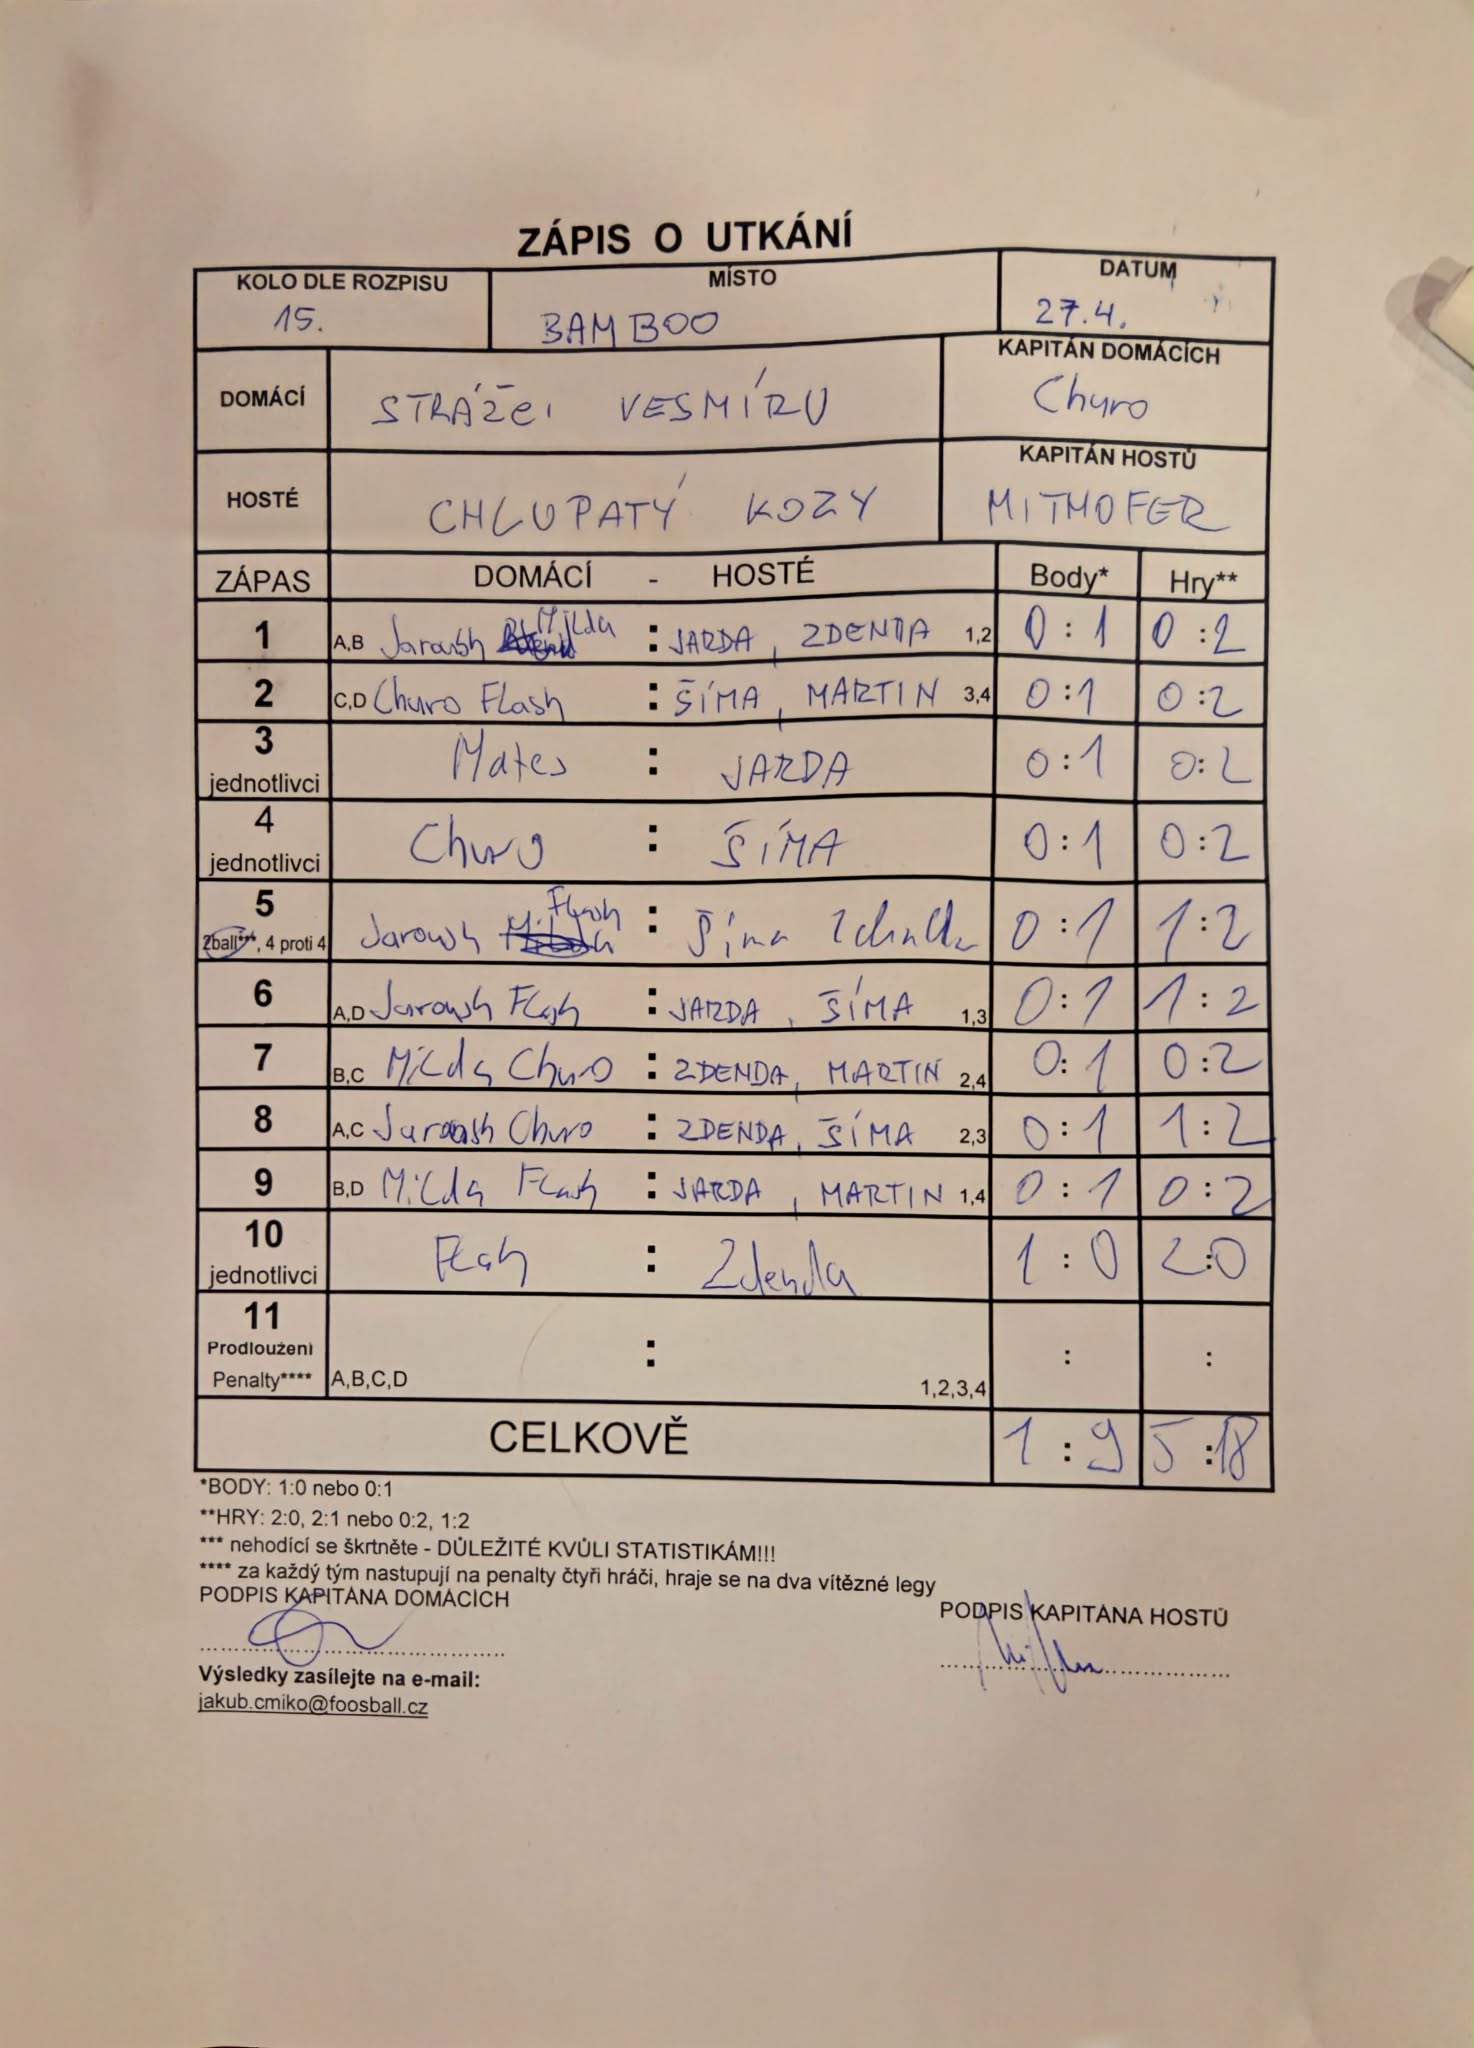 ZÁPIS O UTKÁNÍ
KOLO DLE ROZPISU MÍSTO DATUM
15. BAMBOO 27.4.
DOMÁCÍ STRÁŽCI VESMÍRU KAPITÁN DOMÁCÍCH
Churo
HOSTÉ CHLUPATÝ KOZY KAPITÁN HOSTŮ
MITHOFER
ZÁPAS DOMÁCÍ - HOSTÉ Body* Hry**
1 A,B Jaroush Milda : JARDA, ZDENDA 1,2 0:1 0:2
2 C,D Churo Flash : ŠÍMA, MARTIN 3,4 0:1 0:2
3 jednotlivci Mates : JARDA 0:1 0:2
4 jednotlivci Churo : ŠÍMA 0:1 0:2
5 2ball***, 4 proti 4 Jaroush Flash : Šíma Zdenda 0:1 1:2
6 A,D Jaroush Flash : JARDA, ŠÍMA 1,3 0:1 1:2
7 B,C Milda Churo : ZDENDA, MARTIN 2,4 0:1 0:2
8 A,C Jaroush Churo : ZDENDA, ŠÍMA 2,3 0:1 1:2
9 B,D Milda Flash : JARDA, MARTIN 1,4 0:1 0:2
10 jednotlivci Flash : Zdenda 1:0 2:0
11 Prodloužení Penalty**** A,B,C,D : 1,2,3,4 : :
CELKOVĚ 1:9 5:18
*BODY: 1:0 nebo 0:1
**HRY: 2:0, 2:1 nebo 0:2, 1:2
*** nehodící se škrtněte - DŮLEŽITÉ KVŮLI STATISTIKÁM!!!
**** za každý tým nastupují na penalty čtyři hráči, hraje se na dva vítězné legy
PODPIS KAPITÁNA DOMÁCÍCH PODPIS KAPITÁNA HOSTŮ
Výsledky zasílejte na e-mail:
jakub.cmiko@foosball.cz